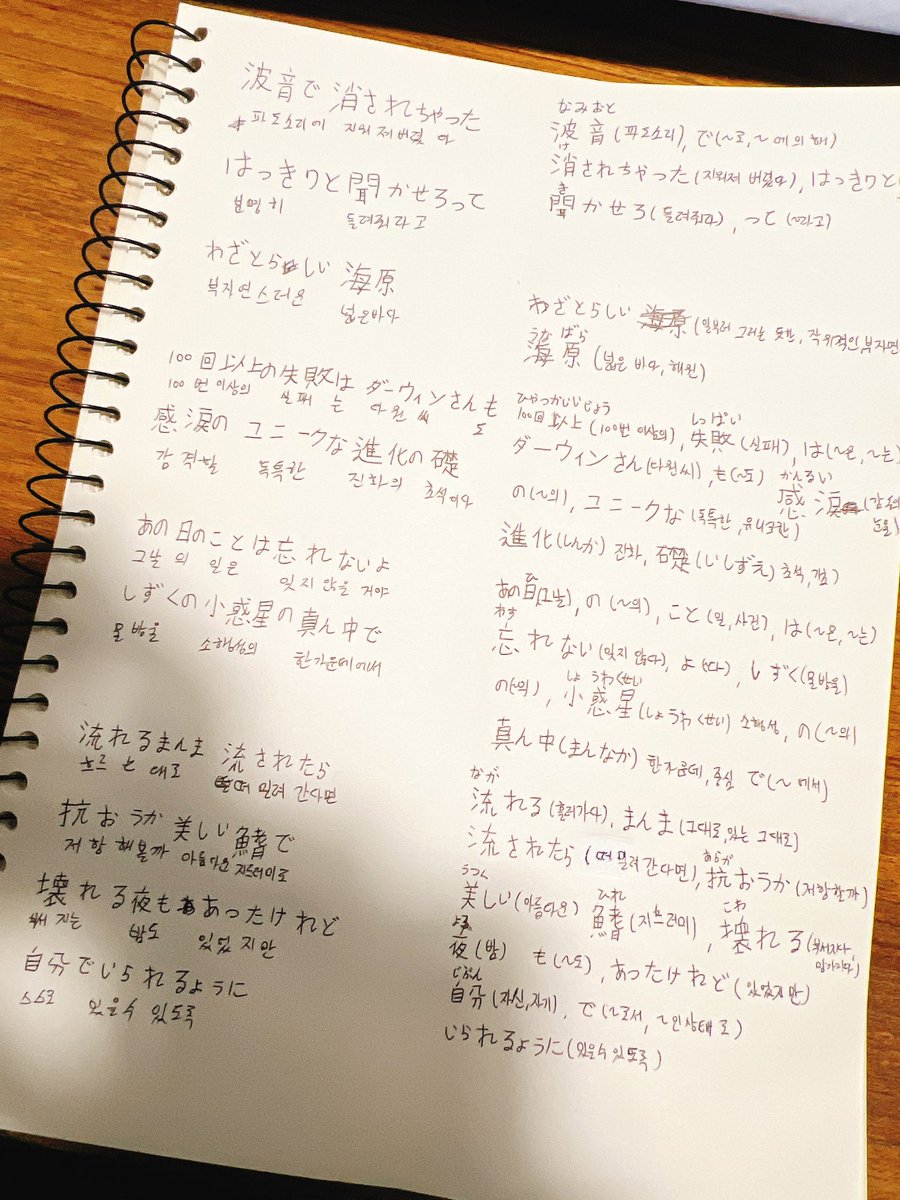 波音で消されちゃった
파도소리에 지워져버렸다
はっきりと聞かせろって
분명히 들려줘라고
わざとらしい 海原
부자연스러운 넓은바다
100回以上の失敗は ダーウィンさんも
100번 이상의 실패는 다윈씨도
感涙の ユニークな進化の礎
감격할 독특한 진화의 초석이다
あの日のことは忘れないよ
그날의 일은 잊지않을거야
しずくの小惑星の真ん中で
물방울 소행성의 한가운데에서
流れるまんま 流されたら
흐르는대로 떠밀려간다면
抗おうか美しい鰭で
저항해볼까 아름다운 지느러미로
壊れる夜もあったけれど
깨지는 밤도 있었지만
自分でいられるように
스스로 있을수있도록
なみおと
波音(파도소리), で(~로, ~에 의해)
け
消されちゃった(지워져버렸다), はっきりと
き
聞かせろ(들려줘라), って(~라고)
わざとらしい (일부러 그러는 듯한, 작위적인, 부자연
うなばら
海原(넓은 바다, 해원)
ひゃっかいいじょう しっぱい
100回以上(100번 이상의), 失敗(실패), は(~은, ~는)
ダーウィンさん(다윈씨), も(~도) かんるい
の(~의), ユニークな(독특한, 유니크한) 感涙(감
눈물)
進化(しんか) 진화, 礎(いしずえ) 초석,
あの日(그날), の(~의), こと(일, 사건), は(~은, ~는)
わす
忘れない(잊지 않다), よ(~다), しずく(물방울)
しょうわくせい
の(~의), 小惑星(しょうわくせい) 소행성, の(~의)
真ん中(まんなか) 한가운데, 중심 で(~에서)
なが
流れる(흘러가다), まんま(그대로, 있는 그대로)
あらが
流されたら(떠밀려간다면), 抗おうか(저항할까)
うつく ひれ こわ
美しい(아름다운) 鰭(지느러미), 壊れる(부서지다, 망가지다)
よる
夜(밤) も(~도), あったけれど(있었지만)
じぶん
自分(자신, 자기), で(~로서, ~인상태로)
いられるように(있을수있도록)